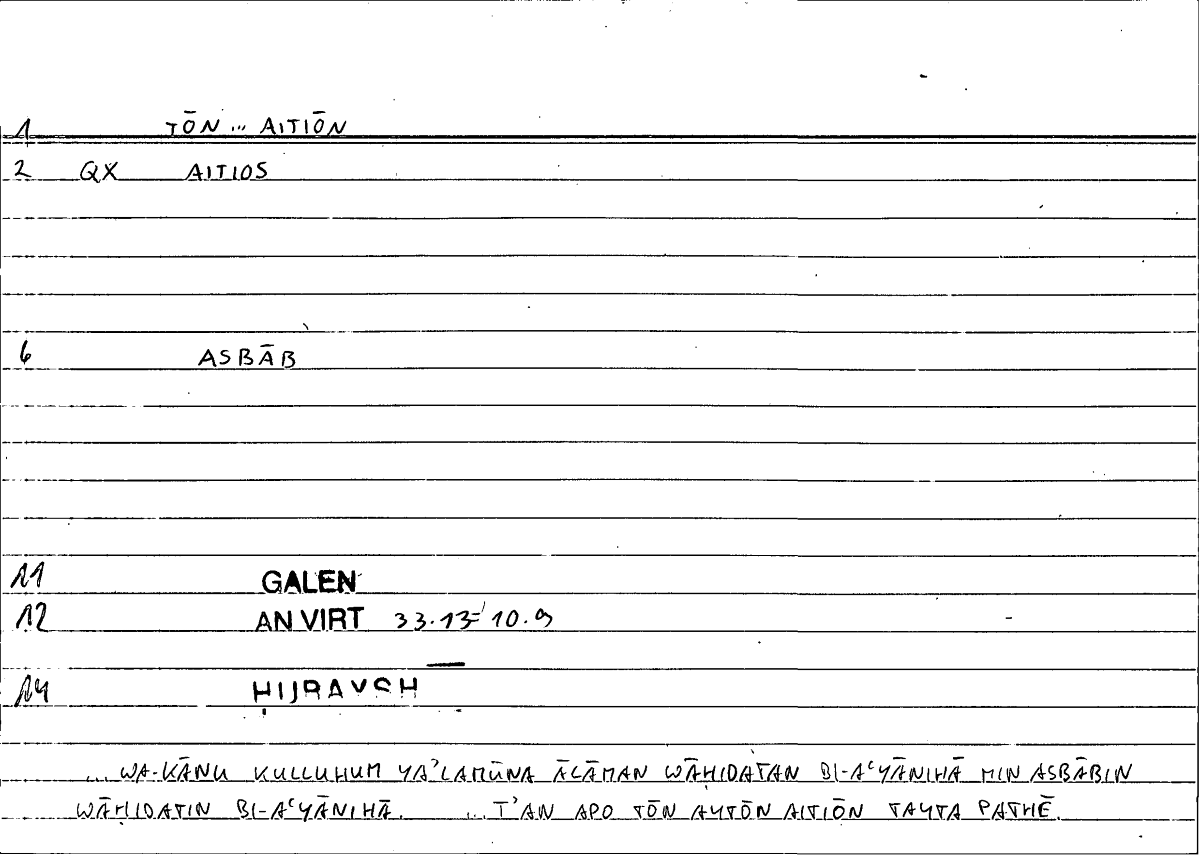 1 TŌN ... AITIŌN
2 QX AITIOS
6 ASBĀB
11 GALEN
12 AN VIRT 33.13 = 10.9
14 ḤIJRAYSH
... WA-KĀNU KULLUHUM YA'LAMŪNA ĀLĀMAN WĀḤIDATAN BI-AʿYĀNIHĀ MIN ASBĀBIN
WĀḤIDATIN BI-AʿYĀNIHĀ. ... T'AN APO TŌN AYTŌN AITIŌN TAYTA PATHĒ.